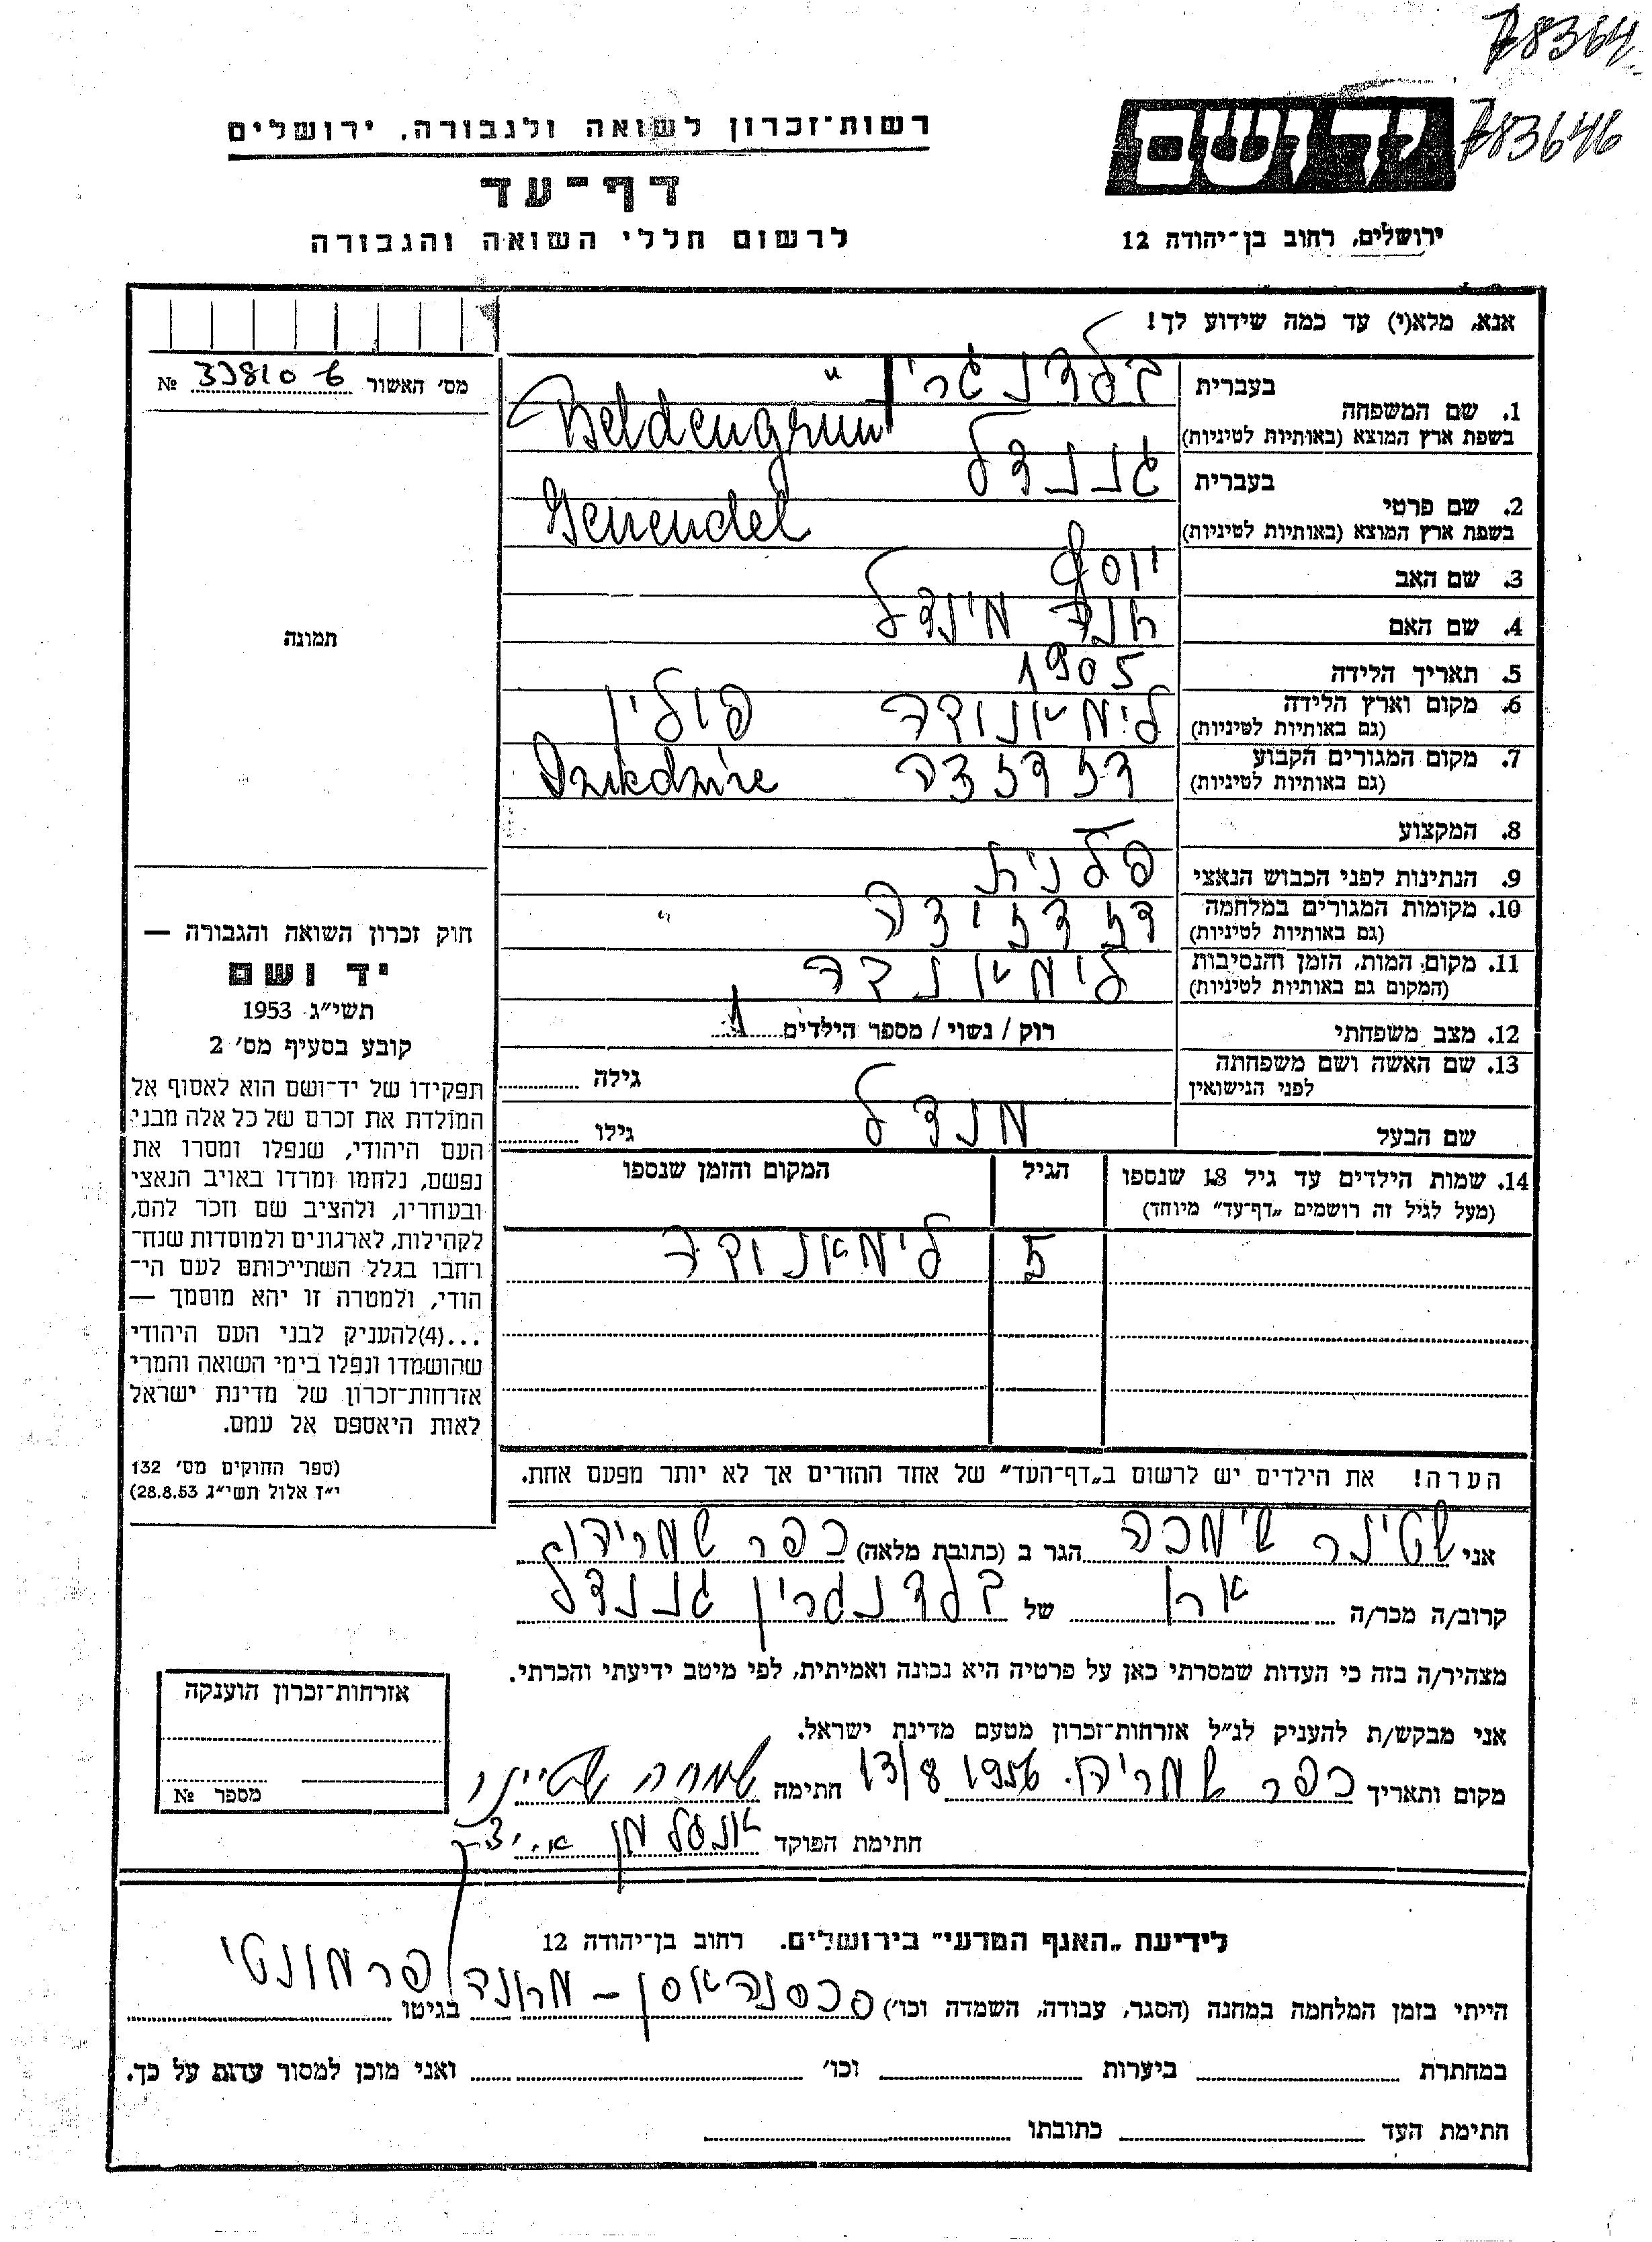 78364
783646
יד ושם
רשות־זכרון לשואה ולגבורה, ירושלים
דף־עד
לרשום חללי השואה והגבורה
ירושלים, רחוב בן־יהודה 12
אנא, מלא(י) עד כמה שידוע לך!
מס' האשור 33810 б №
1. שם המשפחה
בעברית
בשפת ארץ המוצא (באותיות לטיניות) Beldengrün
2. שם פרטי
בעברית גננדל
בשפת ארץ המוצא (באותיות לטיניות) Genendel
3. שם האב יוסף
4. שם האם מינדל
5. תאריך הלידה 1905
6. מקום וארץ הלידה (גם באותיות לטיניות) לימאנובה פולין
7. מקום המגורים הקבוע (גם באותיות לטיניות)
8. המקצוע
9. הנתינות לפני הכבוש הנאצי פלנית
10. מקומות המגורים במלחמה (גם באותיות לטיניות) "
11. מקום המות, הזמן והנסיבות (המקום גם באותיות לטיניות) לימאנבה
12. מצב משפחתי רוק / נשוי / מספר הילדים 1
13. שם האשה ושם משפחתה לפני הנישואין גילה
שם הבעל מנדל גילו
14. שמות הילדים עד גיל 18 שנספו
(מעל לגיל זה רושמים „דף־עד" מיוחד)
הגיל
המקום והזמן שנספו
5 לימאנובה
הערה! את הילדים יש לרשום ב„דף־העד" של אחד ההורים אך לא יותר מפעם אחת.
תמונה
חוק זכרון השואה והגבורה —
יד ושם
תשי"ג 1953
קובע בסעיף מס' 2
תפקידו של יד־ושם הוא לאסוף אל
המולדת את זכרם של כל אלה מבני
העם היהודי, שנפלו ומסרו את
נפשם, נלחמו ומרדו באויב הנאצי
ובעוזריו, ולהציב שם וזכר להם,
לקהילות, לארגונים ולמוסדות שנח־
רחבו בגלל השתייכותם לעם הי־
הודי, ולמטרה זו יהא מוסמך —
...(4)להעניק לבני העם היהודי
שהושמדו ונפלו בימי השואה והמרי
אזרחות־זכרון של מדינת ישראל
לאות היאספם אל עמם.
(ספר החוקים מס' 132
י"ז אלול תשי"ג 28.8.53)
אני שטינר שימכה הגר ב (כתובת מלאה) כפר שמריהו
קרוב/ה מכר/ה של בלדנגרין גננדל
מצהיר/ה בזה כי העדות שמסרתי כאן על פרטיה היא נכונה ואמיתית, לפי מיטב ידיעתי והכרתי.
אני מבקש/ת להעניק לנ"ל אזרחות־זכרון מטעם מדינת ישראל.
מקום ותאריך כפר שמריהו 13/8 1956 חתימה שמחה שטיינר
חתימת הפוקד
אזרחות־זכרון הוענקה
מספר №
לידיעת „האגף המדעי" בירושלים. רחוב בן־יהודה 12
הייתי בזמן המלחמה במחנה (הסגר, עבודה, השמדה וכו') בגיטו
במחתרת ביערות וכו' ואני מוכן למסור עדות על כך.
חתימת העד כתובתו